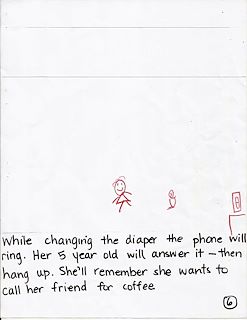 While changing the diaper the phone will
ring. Her 5 year old will answer it - then
hang up. She'll remember she wants to
call her friend for coffee
6